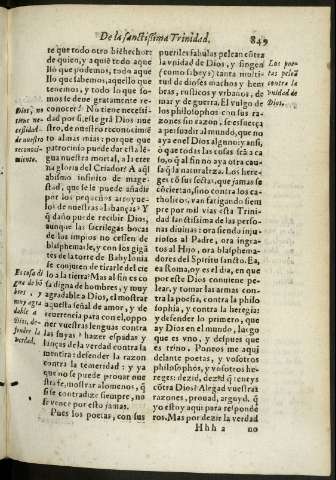 De la sanctissima Trinidad.
849
te que todo otro biẽhechor
de quien, y aquiẽ todo aque
llo que podemos, todo aque
llo que sabemos, todo aque
llo que tenemos, y lo que so
mos se deue gratamente re-
conocer? No tiene necessi-
dad por si, este grã Dios nue
stro, de nuestro reconocimiẽ
to almas mias: porque que
patrocinio puede dar esta lẽ
gua nuestra mortal, a la eter
na gloria del Criador? A aq̃l
abismo infinito de mages-
tad, que se le puede añadir
por los pequeños arroyue-
los de nuestras alabanças? Y
q̃ daño pue de recibir Dios,
aunque las sacrilegas bocas
de los impios no cessen de
blasphemale, y con los gigã
tes de la torre de Babylonia
se conjuren de tirarle del cie
lo a la tierra? Mas al fin es co
sa digna de hombres, y muy
agradable a Dios, el mostrar
aquesta señal de amor, y de
reuerencia para con el, oppo
ner nuestras lenguas contra
las suyas? hazer espadas y
lanças de la verdad contra la
mentira: defender la razon
contra la temeridad: y ya
que no se puede prouar nue
stra fe, mostrar alomenos, q̃
si se contradize siempre, no
se vence por esto jamas.
Pues los poetas, con sus
Dios, no
tiene ne-
cessidad
de nuestro
reconosci-
miento.
Es cosa di
gna de hõ
bres, y
muy agra
dable a
Dios, de-
fender la
verdad.
pueriles fabulas pelean cõtra
la vnidad de Dios, y singen
(como sabeys) tanta multi-
tud de dioses machos y hem
bras, rusticos y vrbanos, de
mar y de guerra. El vulgo de
los philosophos con sus ra-
zones sin razon, se esfuerça
a persuadir al mundo, que no
aya en el Dios alguno: y assi,
o que todas las cosas seã a ca
so, o q̃ al fin no aya otra cau-
sa q̃ la naturaleza. Los here-
ges cõ sus sectas, que jamas se
cõciertan, sino contra los ca-
tholicos, van fatigando siem
pre por mil vias esta Trini-
dad sanctissima de las perso
nas diuinas: ora siendo inju
riosos al Padre, ora ingra-
tos al Hijo, ora blasphema-
dores del Spiritu sancto. Ea,
ea Roma, oy es el dia, en que
por este Dios conuiene pe-
lear, y tomar las armas con-
tra la poesia, contra la philo
sophia, y contra la heregia: y
defender lo primero, que
ay Dios en el mundo, luego
que es vno, y despues que
es trino. Poneos me aqui
delante poetas, y vosotros
philosophos, y vosotros he-
reges: dezid, dezid q̃ teneys
cõtra Dios? Alegad vuestras
razones, prouad, arguyd. q̃
yo estoy aqui para respõde
ros. Mas por dezir la verdad
Los poe-
tas peleã
contra la
vnidad de
Dios.
Hhh a
no